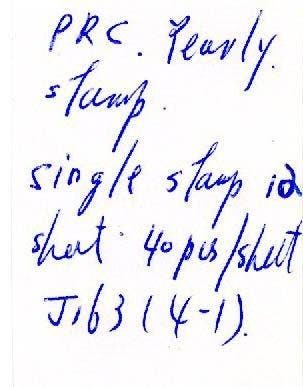 PRC. Yearly
stamp.
single stamp in
sheet. 40 pcs/sheet
J163 (4-1).